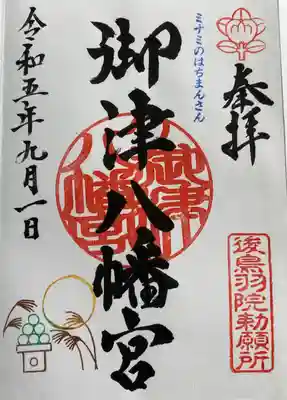 奉拝
ミナミのはちまんさん
御津八幡宮
後鳥羽院勅願所
令和五年九月一日